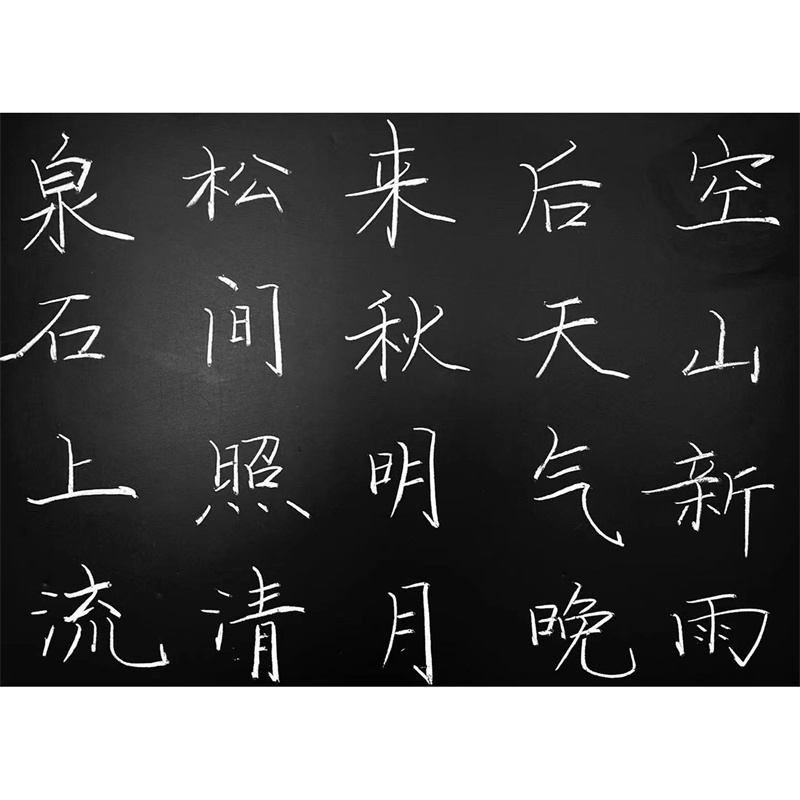 空山新雨
后天气晚
来秋明月
松间照清
泉石上流